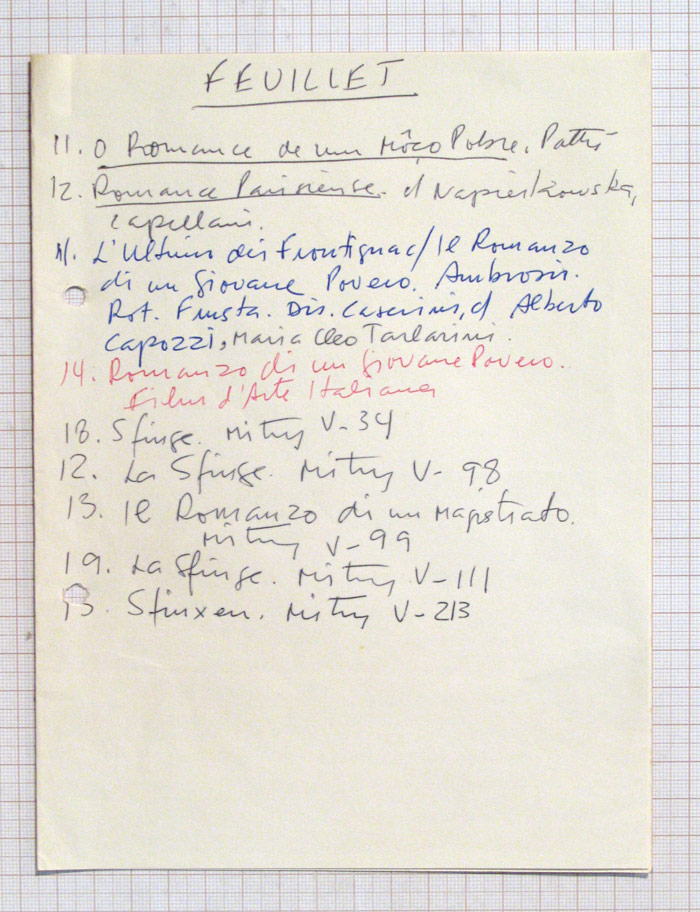 FEUILLET
11. O Romance de um Môço Pobre. Pathé
12. Romance Parisiense. d Napierkowska,
Capellani.
11. L'Ultimo dei Frontignac / Il Romanzo
di un Giovane Povero. Ambrosio.
Rot. Frusta. Dir. Caserini, d Alberto
Capozzi, Maria Cleo Tarlarini.
14. Romanzo di un Giovane Povero.
Film d'Arte Italiana
18. Sfinge. Mitry V-34
12. La Sfinge. Mitry V-98
13. Il Romanzo di un Magistrato.
Mitry V-99
19. La Sfinge. Mitry V-111
13. Sfinxen. Mitry V-213